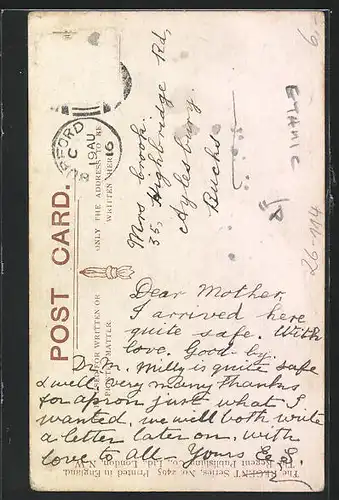 POST CARD.
ONLY THE ADDRESS TO BE
WRITTEN HERE
FOR WRITTEN OR
PRINTED MATTER.
19 AU
16
Mrs Crook.
35, Highbridge Rd,
Aylesbury.
Bucks
Dear Mother,
I arrived here
quite safe. With
love. Good-by.
Dr M. Milly is quite safe
& well, very many thanks
for apron just what I
wanted, we will both write
a letter later on, with
love to all. Yours E. S.
The REGENT Series, No. 2495 Printed in England
The Regent Publishing Co., Ltd., London, N.W.
6,-
ETHNIC
26-1114